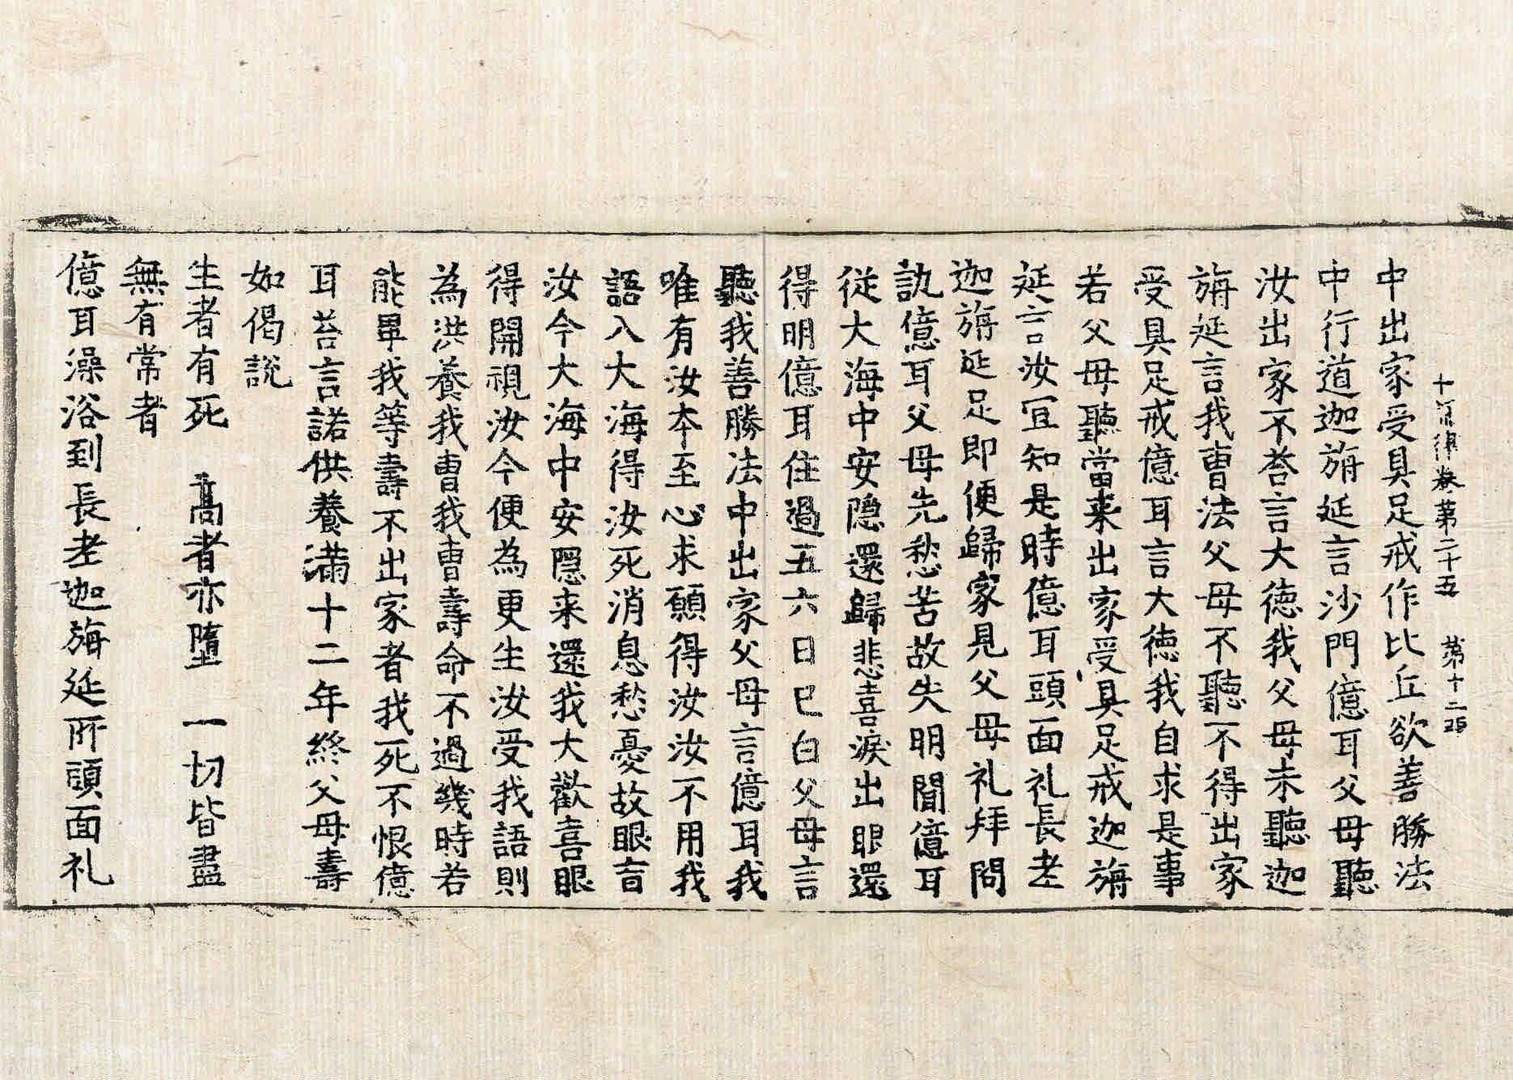 十誦律卷第二十五　第十二張
中出家受具足戒作比丘欲善勝法
中行道迦旃延言沙門億耳父母聽
汝出家不荅言大徳我父母未聽迦
旃延言我曺法父母不聽不得出家
受具足戒億耳言大徳我自求是事
若父母聽當来出家受具足戒迦旃
延言汝冝知是時億耳頭面礼長老
迦旃延足即便歸家見父母礼拜問
訊億耳父母先愁苦故失明聞億耳
従大海中安隠還歸悲喜淚出眼還
得明億耳住過五六日已白父母言
聽我善勝法中出家父母言億耳我
唯有汝本至心求願得汝汝不用我
語入大海得汝死消息愁憂故眼盲
汝今大海中安隠来還我大歡喜眼
得開視汝今便為更生汝受我語則
為洪養我曺我曺壽命不過幾時若
能畢我等壽不出家者我死不恨億
耳荅言諾供養滿十二年終父母壽
如偈説
生者有死　髙者亦墮　一切皆盡
無有常者
億耳澡浴到長老迦旃延所頭面礼